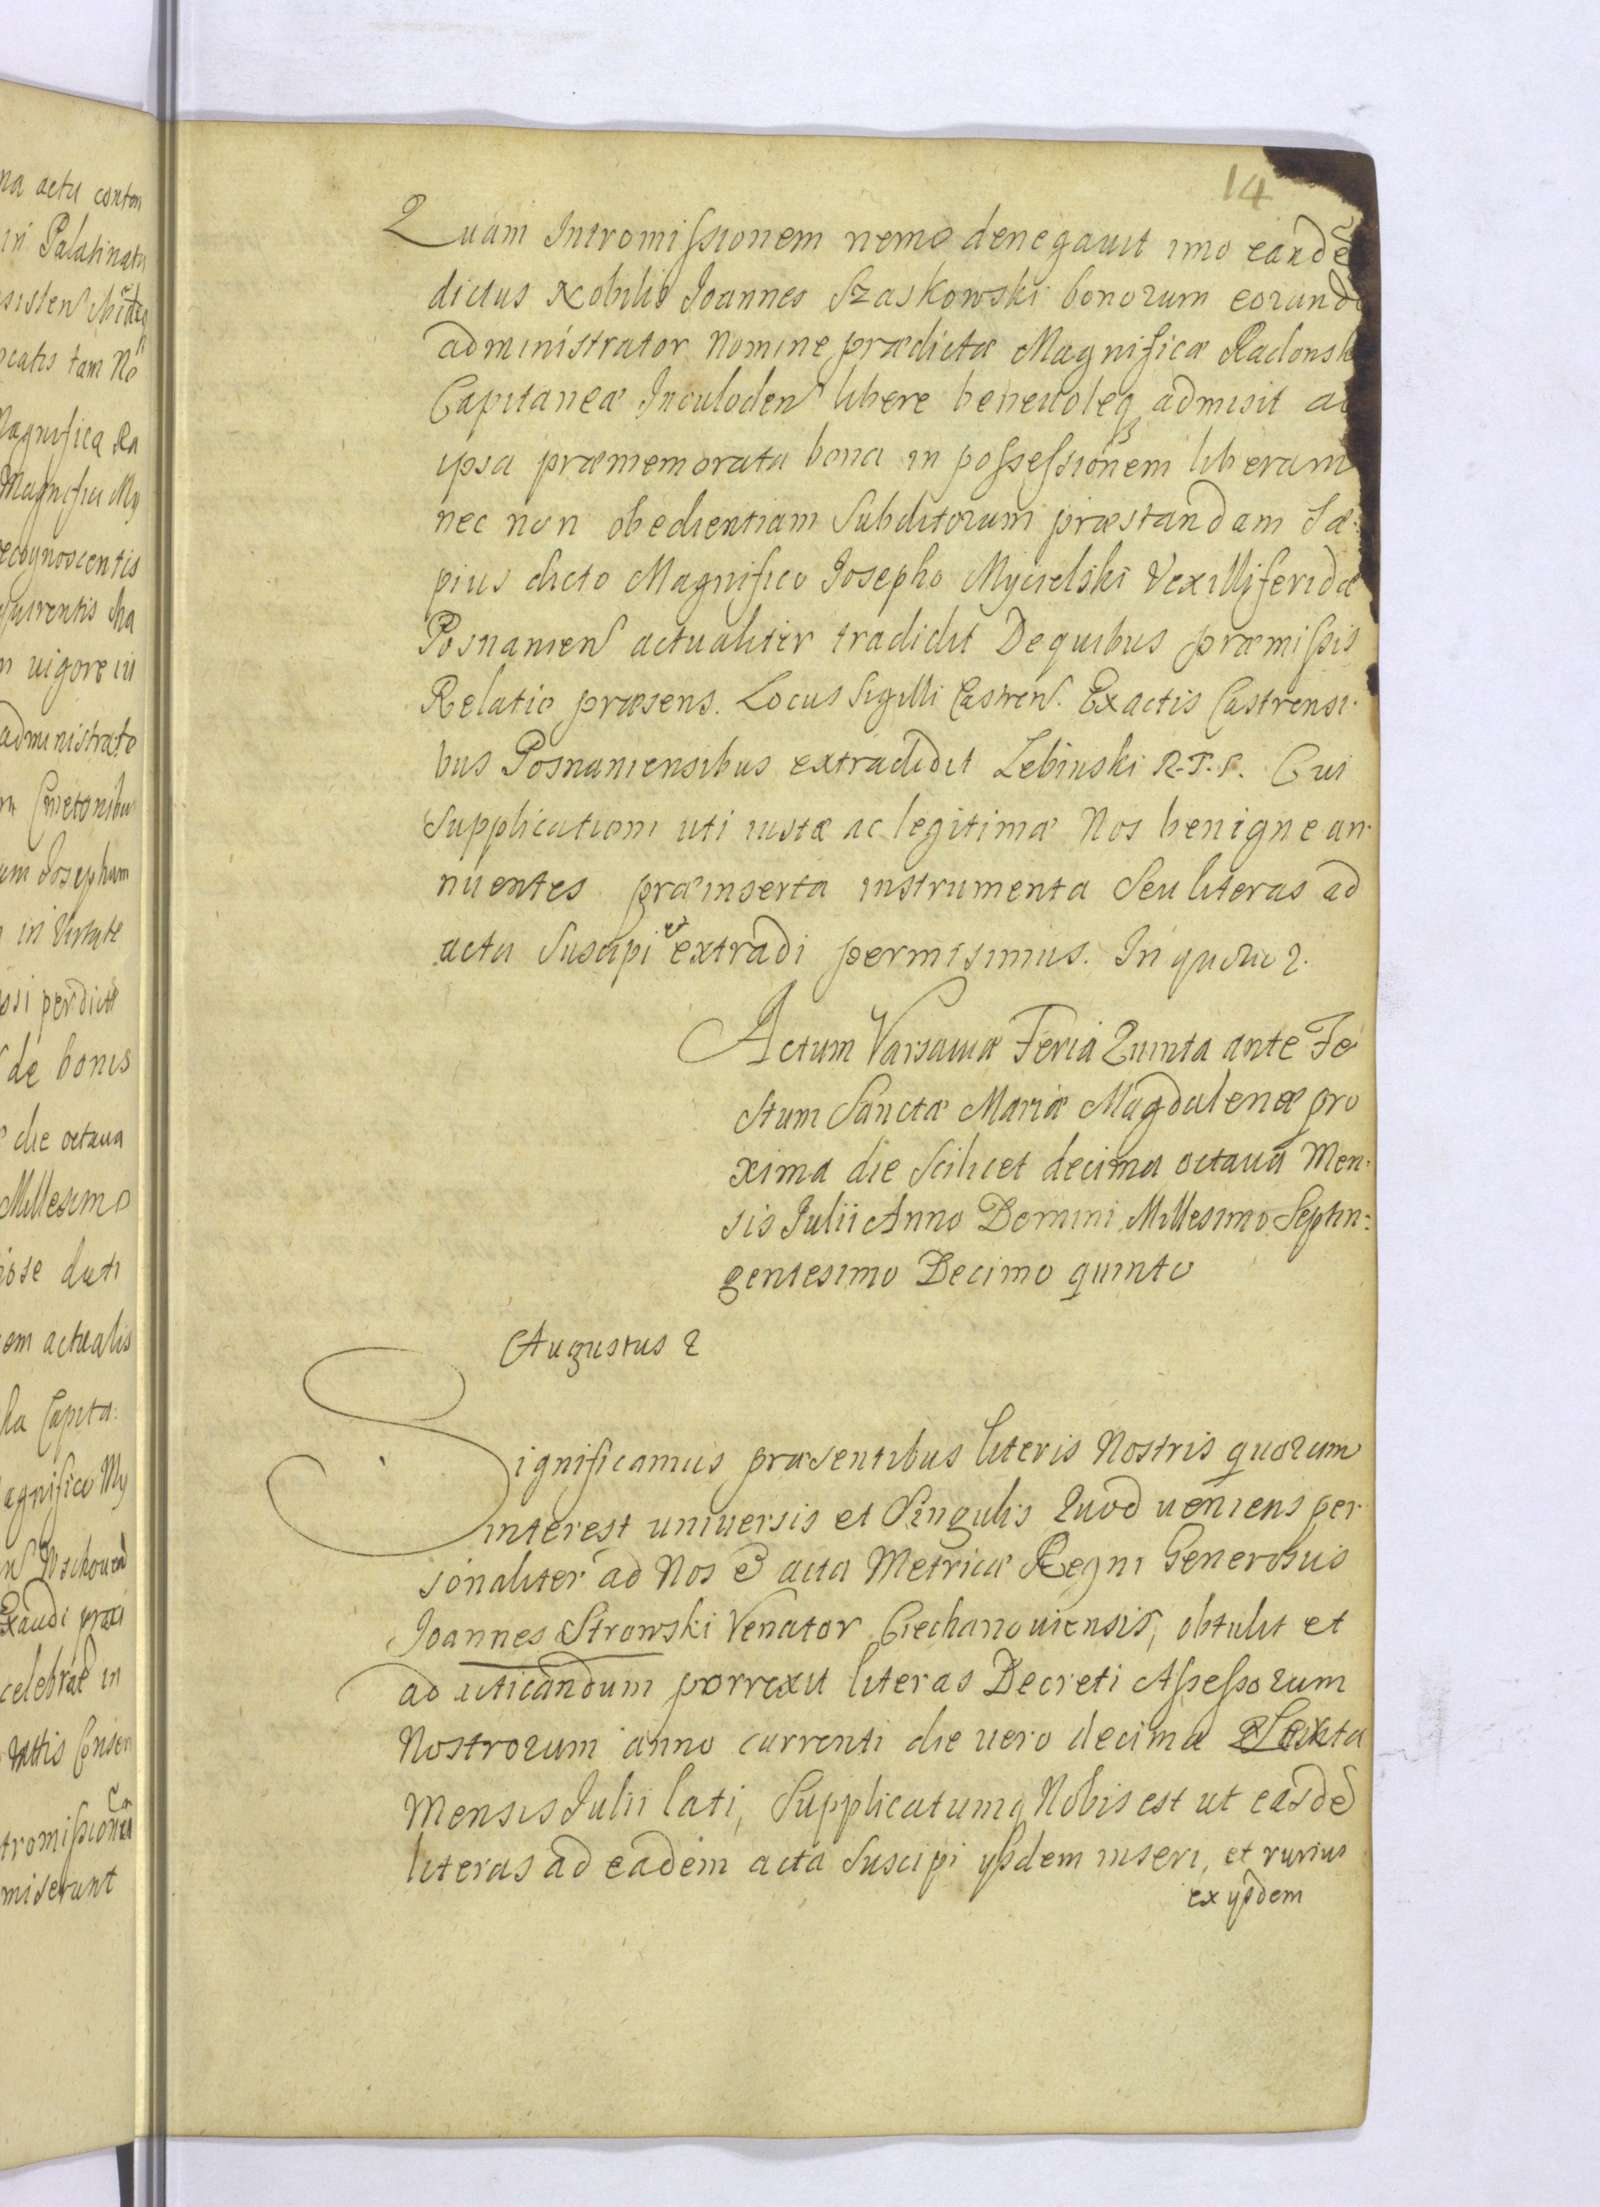 14
Quam Intromissionem nemo denegauit imo eande
dictus Nobilis Joannes Szaskowski bonorum eorund
administrator Nomine prædictæ Magnificæ Radonsk
Capitaneæ Inculoden libere beneuoleq admisit ac
ipsa præmemorata bona in possessionem liberam
nec non obedientiam Subditorum præstandam Sæ-
pius dicto Magnifico Josepho Mycielski Vexilliferidæ
Posnanien actualiter tradidit De quibus præmissis
Relatio præsens. Locus Sigilli Castren. Ex actis Castrensi-
bus Posnaniensibus extradidit Lebinski R.T.P. Cui
Supplicationi uti iustæ ac legitimæ Nos benigne an-
nuentes præinserta instrumenta Seu literas ad
acta Suscipi et extradi permisimus. In quoru 2.
Actum Varsauiæ Feria Quinta ante Fe
Stum Sanctæ Mariæ Magdalenæ pro
xima die Scilicet decima octaua Men-
sis Julii Anno Domini Millesimo Septin-
gentesimo Decimo quinto
Augustus 2
Significamus præsentibus literis Nostris quorum
interest uniuersis et Singulis Quod ueniens per
sonaliter ad Nos & acta Metricæ Regni Generosus
Joannes Strowski Venator Ciechanouiensis, obtulit et
ad acticandum porrexit literas Decreti Assessorum
Nostrorum anno currenti die uero decima Sexta
Mensis Julii lati, Supplicatumq Nobis est ut easde
literas ad eadem acta Suscipi ysdem inseri, et rursus
ex ysdem
na actu
in Palatinatu
catis tam No
Magnifica Ra
Magnifici My
recognoscentis
vigore in
administrato
Cmetonibus
um Josephum
in Virtute
de bonis
die octaua
Millesimo
dati
em actualis
Capita:
agnifico My
celebrat in
tromissionem
miserunt